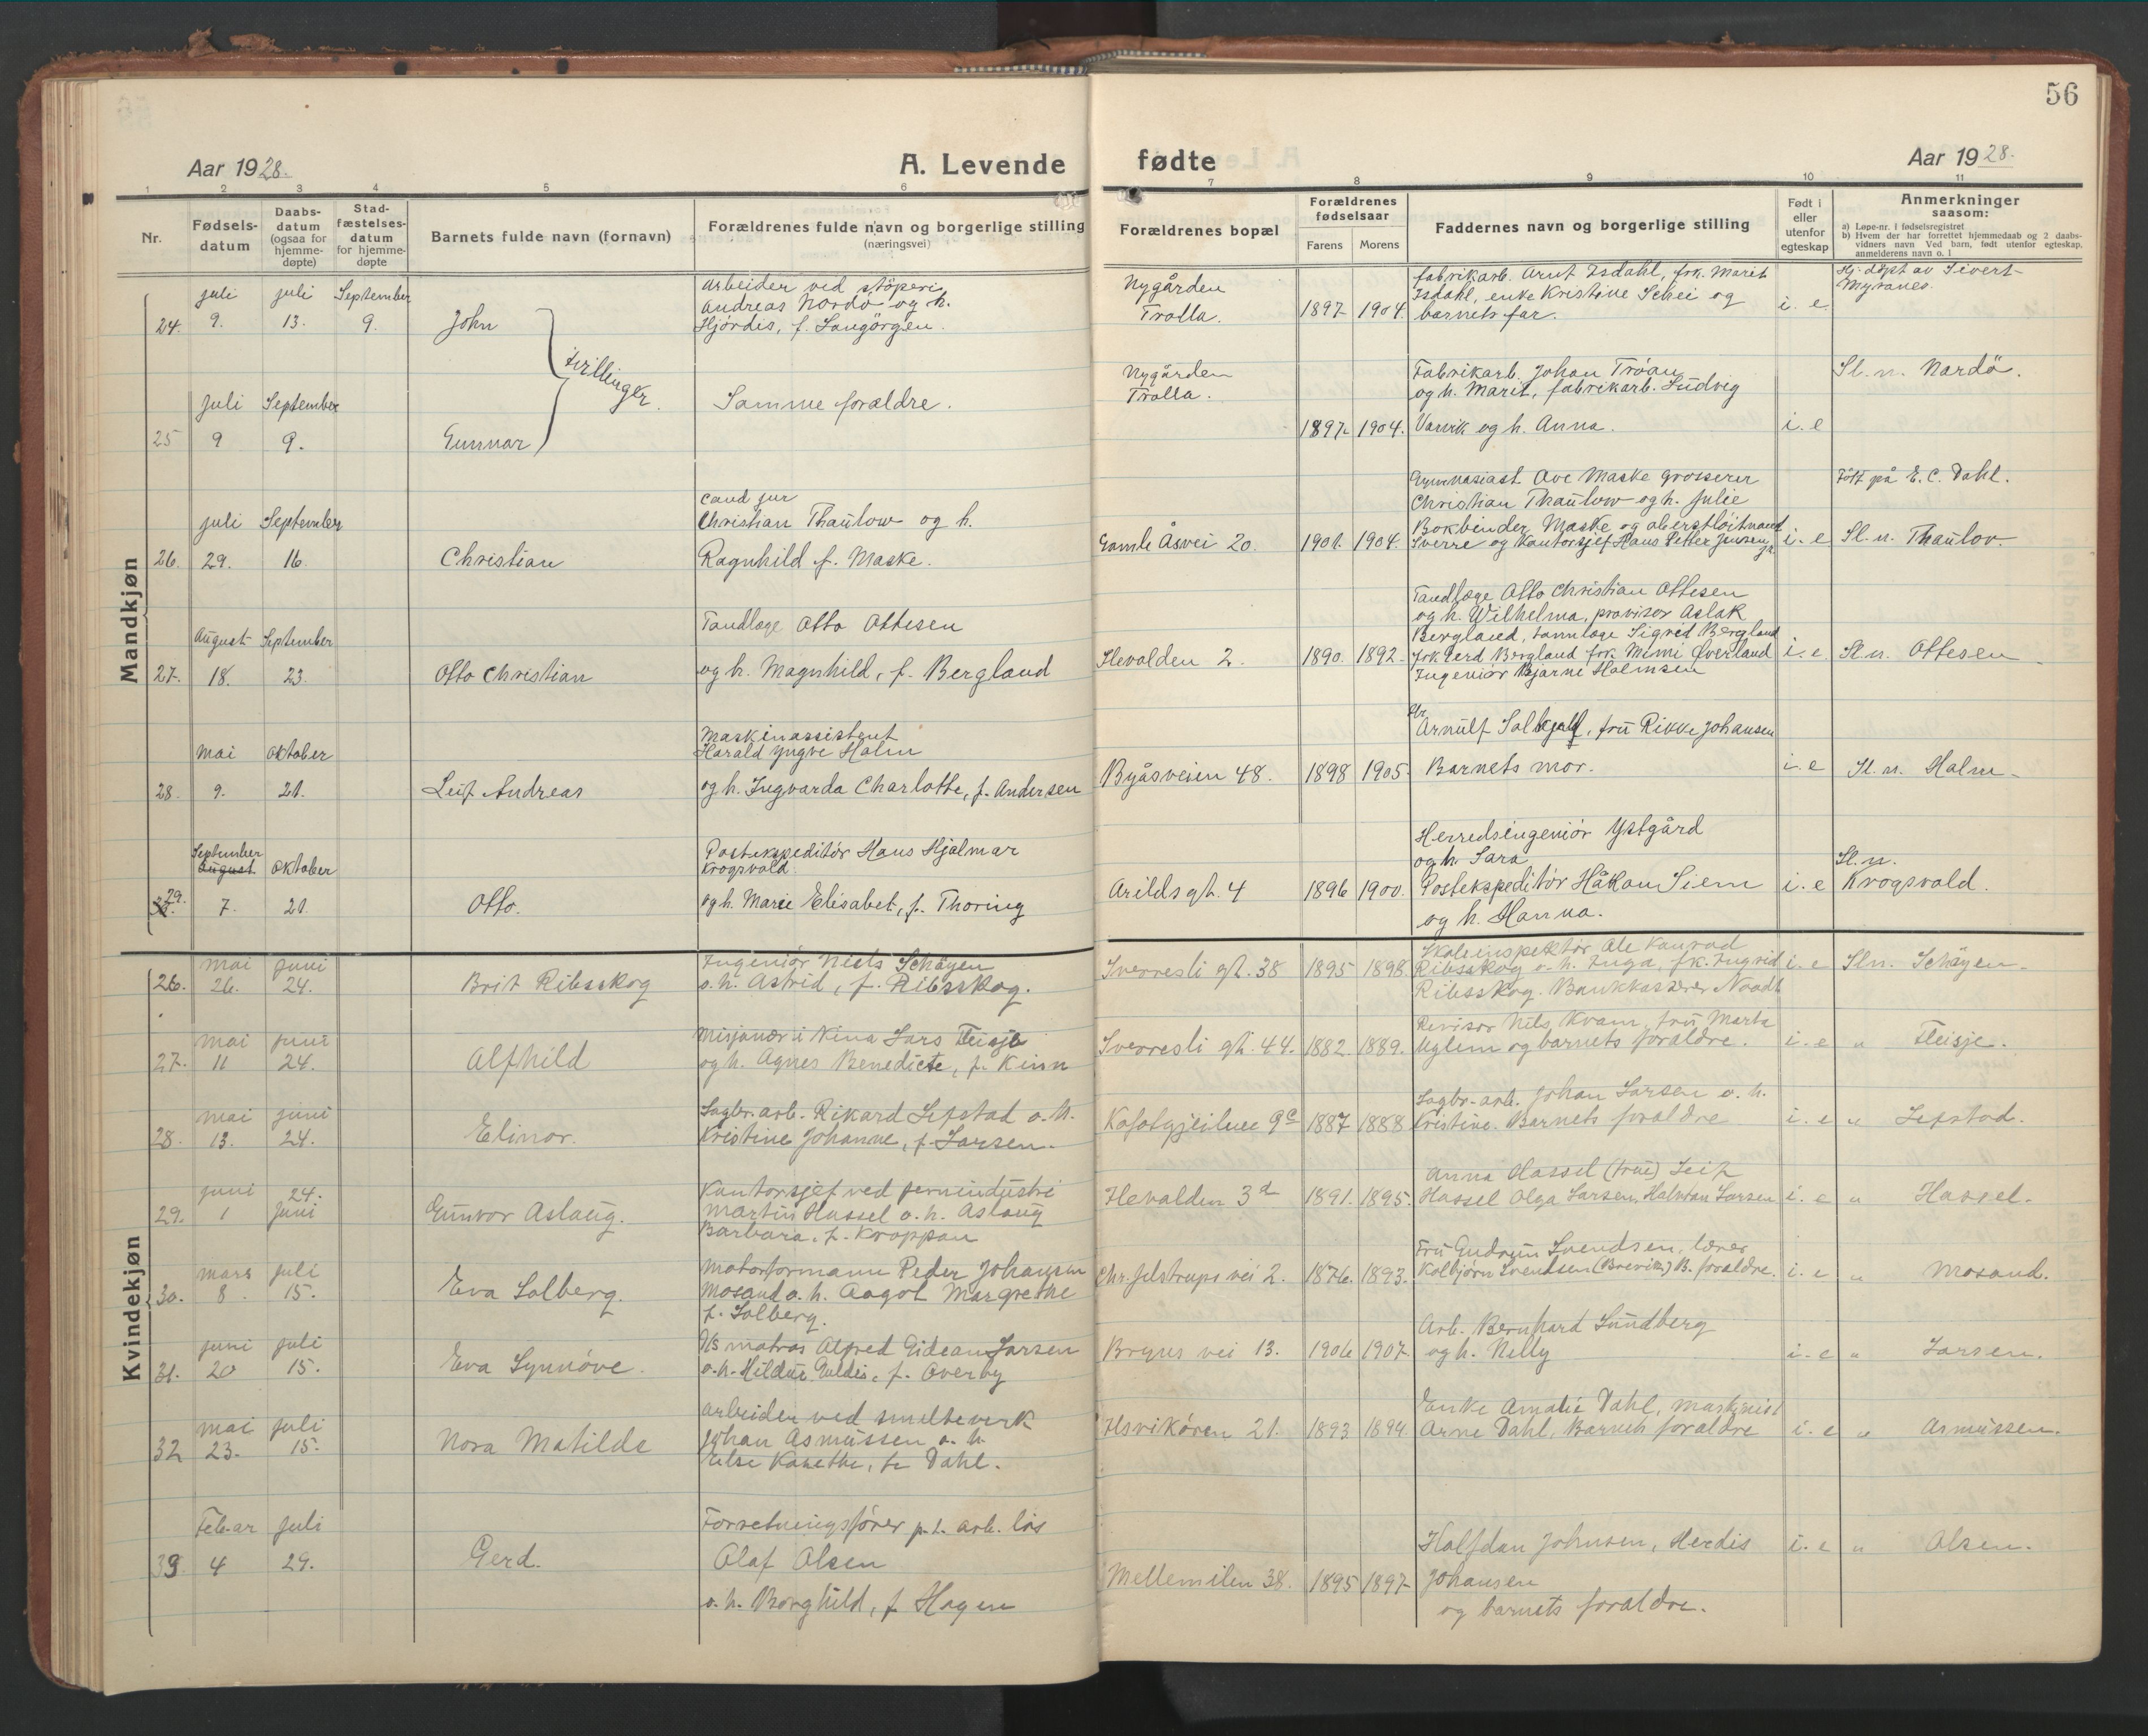 56
Aar 1928.
A. Levende fødte
Aar 1928.
1 2 3 4 5 6 7 8 9 10 11
Nr.
Fødsels-
datum
Daabs-
datum
(ogsaa for
hjemme-
døpte)
Stad-
fæstelses-
datum
for hjemme-
døpte
Barnets fulde navn (fornavn)
Forældrenes fulde navn og borgerlige stilling
(næringsvei)
Forældrenes bopæl
Forældrenes
fødselsaar
Farens Morens
Faddernes navn og borgerlige stilling
Født i
eller
utenfor
egteskap
Anmerkninger
saasom:
a) Løpe-nr. i fødselsregistret
b) Hvem der har forrettet hjemmedaab og 2 daabs-
vidners navn Ved barn, født utenfor egteskap,
anmelderens navn o. l
Mandkjøn
24. juli 9. juli 13. September 9.
John
Arbeider ved støperi
Andreas Nordö og h.
Hjördis, f. Langörgen.
Nygården
Trolla.
1897 1904.
fabrikarb. Arnt Isdahl, frk. Marit
Isdahl, enke Kristine Schei og
barnets far.
i. e.
Hj. döpt av Sivert
tvillinger.
25 juli 9 September 9.
Gunnar
Samme foraldre.
Nygården
Trolla.
1897. 1904.
Fabrikarb. Johan Tröan
og h. Marit, fabrikarb. Ludvig
Vanvik og h. Anna.
i. e
Sl. n. Nardö.
26. juli 29. September 16.
Christian
Cand jur
Christian Thaulow og h.
Ragnhild f. Maske.
Gamle Åsvei 20.
1901. 1904.
Gymnasiast. Ove Maske grosserer
Christian Thaulow og h. Julie
Bokbinder Maske og oberstlöitnant
Sverre og Kontorsjef Hans Petter Jensen jr.
i. e
Født på E. C. Dahl.
Sl. n. Thaulov.
27. August 18. September 23.
Otto Christian
Tandlæge Otto Ottesen
og h. Magnhild, f. Bergland
Ilevolden 2.
1890. 1892.
Tandlæge Otto Christian Ottesen
og h. Wilhelma, provisor Aslak
Bergland, tannlæge Sigrid Bergland
frk. Gerd Bergland frk. Mimi Överland
Ingeniör Bjarne Holmsen
i. e
Sl. n. Ottesen
28. mai 9. Oktober 21.
Leif Andreas
Maskinassistent
Harald Yngve Holm
og h. Ingvarda Charlotte, f. Andersen
Byåsveien 48.
1898 1905.
Arnulf, fru Rikke Johansen
Barnets mor.
i. e
Sl. n. Holm
29. September August 7. Oktober 21.
Otto.
Postekspeditör Hans Hjalmar
Krogsvold.
og h. Marie Elisabet, f. Thoring
Arilds gt. 4
1896 1900.
Herredsingeniör Ystgård
og h. Sara
Postekspeditör Håkon Siem
og h. Hanna.
i. e
Sl. n.
Krogsvold.
Kvindekjøn
26. mai 26. juni 24.
Brit Ribsskog
Ingeniör Niels Schöyen
o. h. Astrid, f. Ribsskog.
Sverresli gt. 38
1895 1898.
Skoleinspektör Ole Konrad
Ribsskog o. h. Inga, frk. Ingrid
Ribsskog. Bankkasserer
i. e
Sl.n. Schöyen.
27. mai 11 juni 24.
Alfhild
Misjonær i Kina Lars Fleisje
og h. Agnes Benedicte, f. Kinn
Sverresli gt. 44.
1882. 1889.
Revisor Nils Kvam, fru Marta
Uglem og barnets foraldre.
i. e
" Fleisje.
28. mai 13. juni 24.
Elinor.
Sagbr. arb. Rikard Sefstad o. h.
Kristine Johanne, f. Larsen.
1887 1888
Sagbr.-arb. Johan Larsen o. h.
Kristine. Barnets foraldre
i. e
" Sefstad.
29. juni 1 24. juni
Gunvor Aslaug.
Kontorsjef ved jernindustri
Martin Hassel o. h. Aslaug
Barbara, f. Kroppan
Ilevolden 3d
1891. 1895.
Anna Hassel (frue) Leif
Hassel Olga Larsen, Halvdan Larsen
i. e
" Hassel.
30. mars 8. juli 15.
Eva Solberg.
Motorformann Peder Johansen
Mosand o. h. Aagot Margrethe
f. Solberg.
Chr. Jelstrups vei 2.
1876. 1893.
Fru Gudrun Svendsen, lærer
Kolbjörn Svendsen (Brevik) B. foraldre.
i. e
" Mosand.
31. juni 20 juli 15.
Eva Synnöve.
matros Alfred Gidean Larsen
o. h. Hildur Guldis, f. Överby
Bryns vei 13.
1906 1907.
Arb. Bernhard Lundberg
og h. Nelly
i. e
" Larsen.
32 mai 23. juli 15.
Nora Matilde
arbeider ved smelteverk
Johan Asmussen o. h.
Else Kanethe, f. Dahl.
Ilsvikören 21.
1893 1894.
Enke Amalie Dahl, maskinist
Arne Dahl, Barnets foraldre
i. e
" Asmussen.
33 Februar 4 juli 29.
Gerd.
Forretningsförer p. t. arb. lös
Olaf Olsen
o. h. Borghild, f. Hagen
Mellemilen 38.
1895 1897
Halfdan Johnsen, Herdis
Johansen
og barnets foraldre.
i. e
" Olsen.